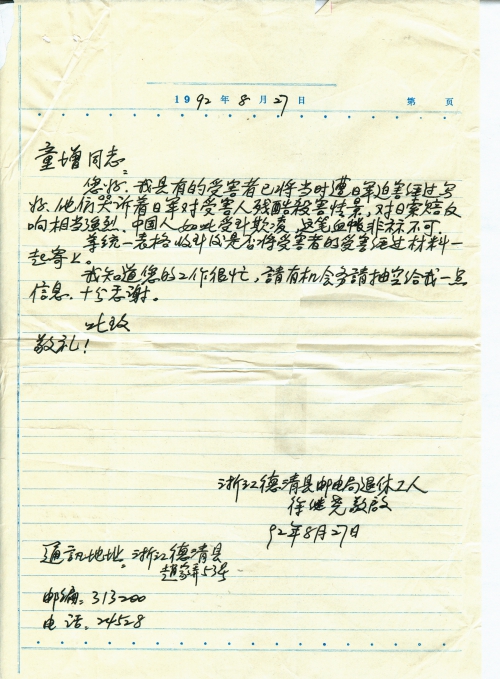 1992年8月27日 第 页
童增同志:
您好.我县有的受害者已将当时遭日军迫害经过写
好.他们哭诉着日军对受害人残酷被害情景,对日索赔反
响相当强烈.中国人如此受针欺凌,这笔血帐非标不可.
等统一表格收针仅是否将受害者的受害经过材料一
起寄上。
我知道您的工作很忙,請有机会务請抽空给我一点
信息.十分感谢。
此致
敬礼!
浙江德清县邮电局退休工人
徐继尧敬啟
92年8月27日
通訊地址:浙江德清县
趙家弄53号
邮编:313200
电话:24528